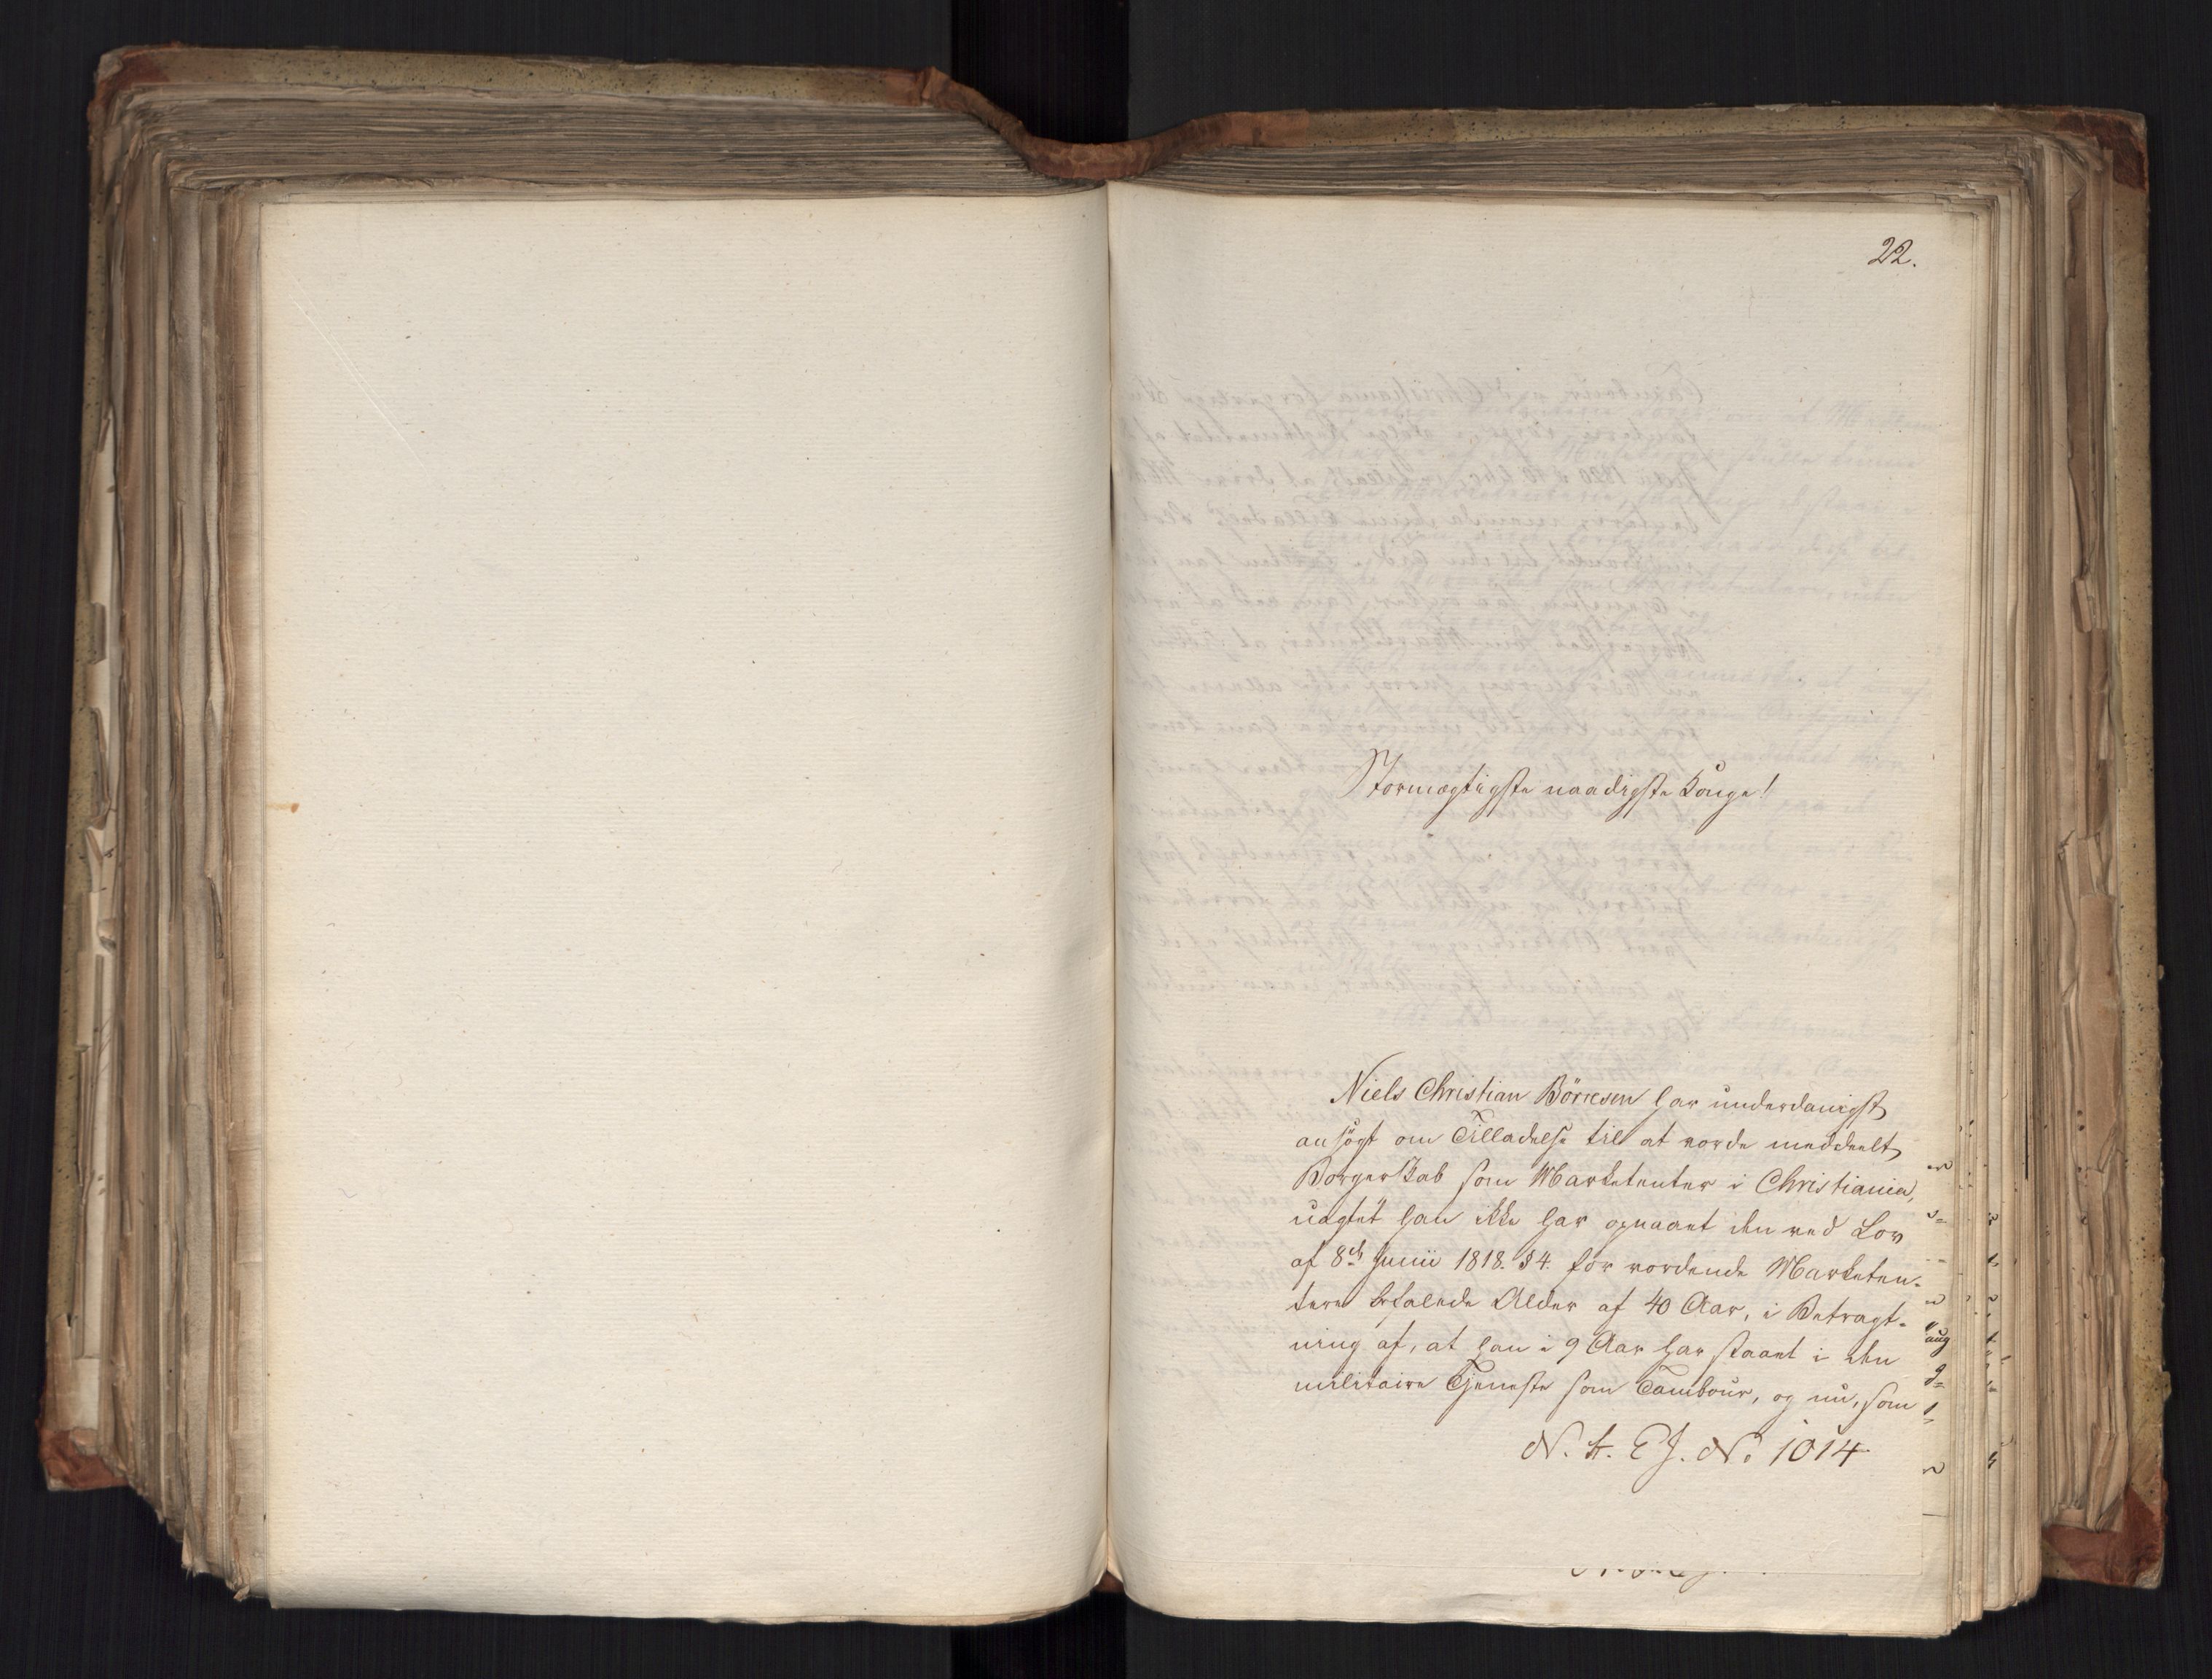 22.
Stormægtigste naadigste Konge!
Niels Christian Börresen har underdanigst
ansögt om Tilladelse til at vorde meddeelt
Borgerskab som Marketenter i Christiania,
uagtet han ikke har opnaaet den ved Lov
af 8de Junii 1818. §4. for vordende Marketen-
tere befalede Alder af 40 Aar, i Betragt-
ning af, at han i 9 Aar har staaet i den
militaire Tjeneste som Tambour, og nu, som
N. 1014